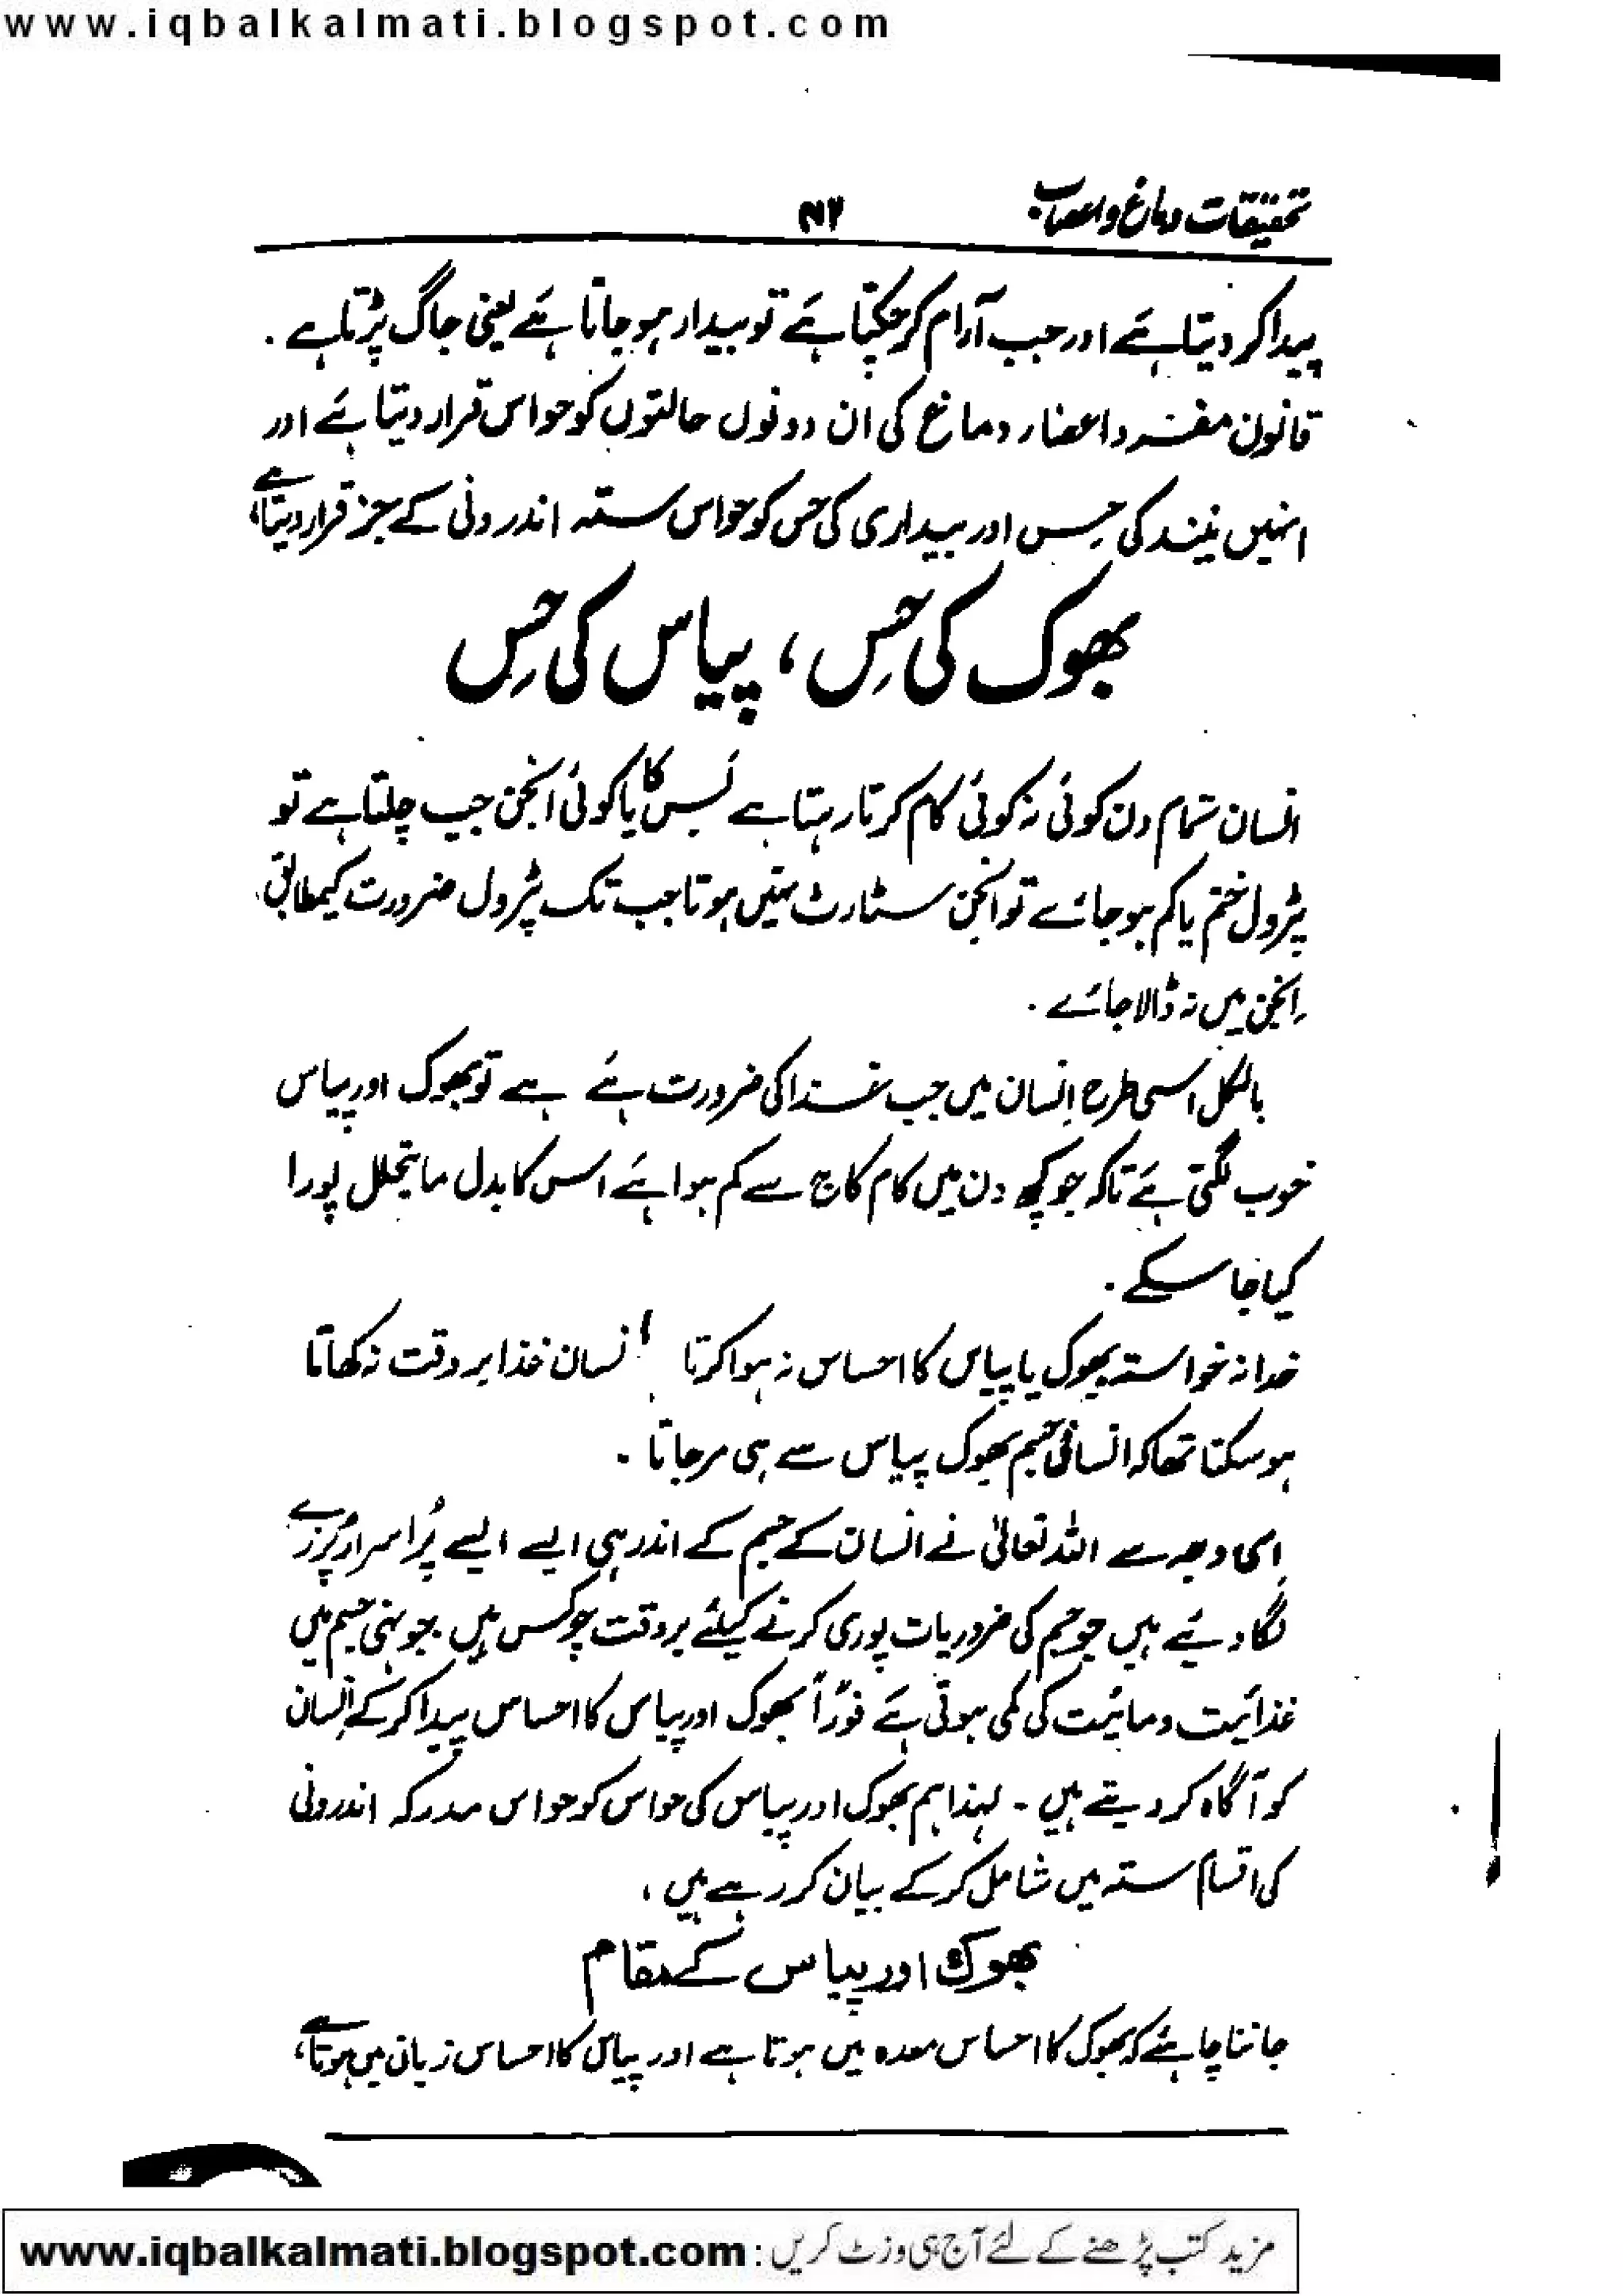 www.iqbalkalmati.blogspot.com
تحقیقات دماغ و اعصاب
پیدا کر دیتا ہے اور جب آرام کر چکتا ہے تو بیدار ہو جاتا ہے یعنی جاگ پڑتا ہے .
قانون مفرد اعضاء دماغ کی ان دونوں حالتوں کو حواس قرار دیتا ہے اور
انہیں نیند کی حس اور بیداری کی حس کو حواس ستہ اندرونی کے جز قرار دیتا ہے
بھوک کی حِس ، پیاس کی حِس
انسان تمام دن کوئی نہ کوئی کام کرتا رہتا ہے بس کا یا کوئی انجن جب چلتا ہے تو
پٹرول ختم یا کم ہو جائے تو انجن سٹارٹ نہیں ہوتا جب تک پٹرول ضرورت کیمطابق
انجن میں نہ ڈالا جائے .
بالکل اسی طرح انسان میں جب غذا کی ضرورت ہے ہے تو بھوک اور پیاس
خوب لگتی ہے تاکہ جو کچھ دن میں کام کاج سے کم ہوا ہے اس کا بدل ما یتحلل پورا
کیا جا سکے .
خدانہ خواستہ بھوک یا پیاس کا احساس نہ ہوا کرتا انسان غذا بر وقت نہ کھاتا
ہو سکتا تھا کہ انسانی جسم بھوک پیاس سے ہی مر جاتا .
اسی وجہ سے اللہ تعالیٰ نے انسان کے جسم کے اندر ہی ایسے ایسے پُراسرار پُرزے
لگا دیئے ہیں جو جسم کی ضروریات پوری کرنے کیلئے بر وقت چوکس ہیں . جونہی جسم میں
غذائیت و مائیت کی کمی ہوتی ہے فوراً بھوک اور پیاس کا احساس پیدا کر کے انسان
کو آگاہ کر دیتے ہیں - لہذا ہم بھوک اور پیاس کی حواس کو حواس مدرکہ اندرونی
کی اقسام ستہ میں شامل کر کے بیان کر رہے ہیں ،
بھوک اور پیاس کے مقام
جاننا چاہئے کہ بھوک کا احساس معدہ میں ہوتا ہے اور پیاس کا احساس زبان میں ہوتا ہے،
مزید کتب پڑھنے کے لئے آج ہی وزٹ کریں : www.iqbalkalmati.blogspot.com